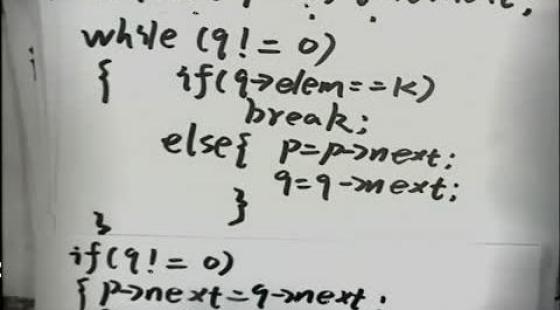 while (q != 0)
{ if(q->elem==k)
break;
else{ p=p->next;
q=q->next;
}
}
if(q != 0)
{ p->next=q->next;